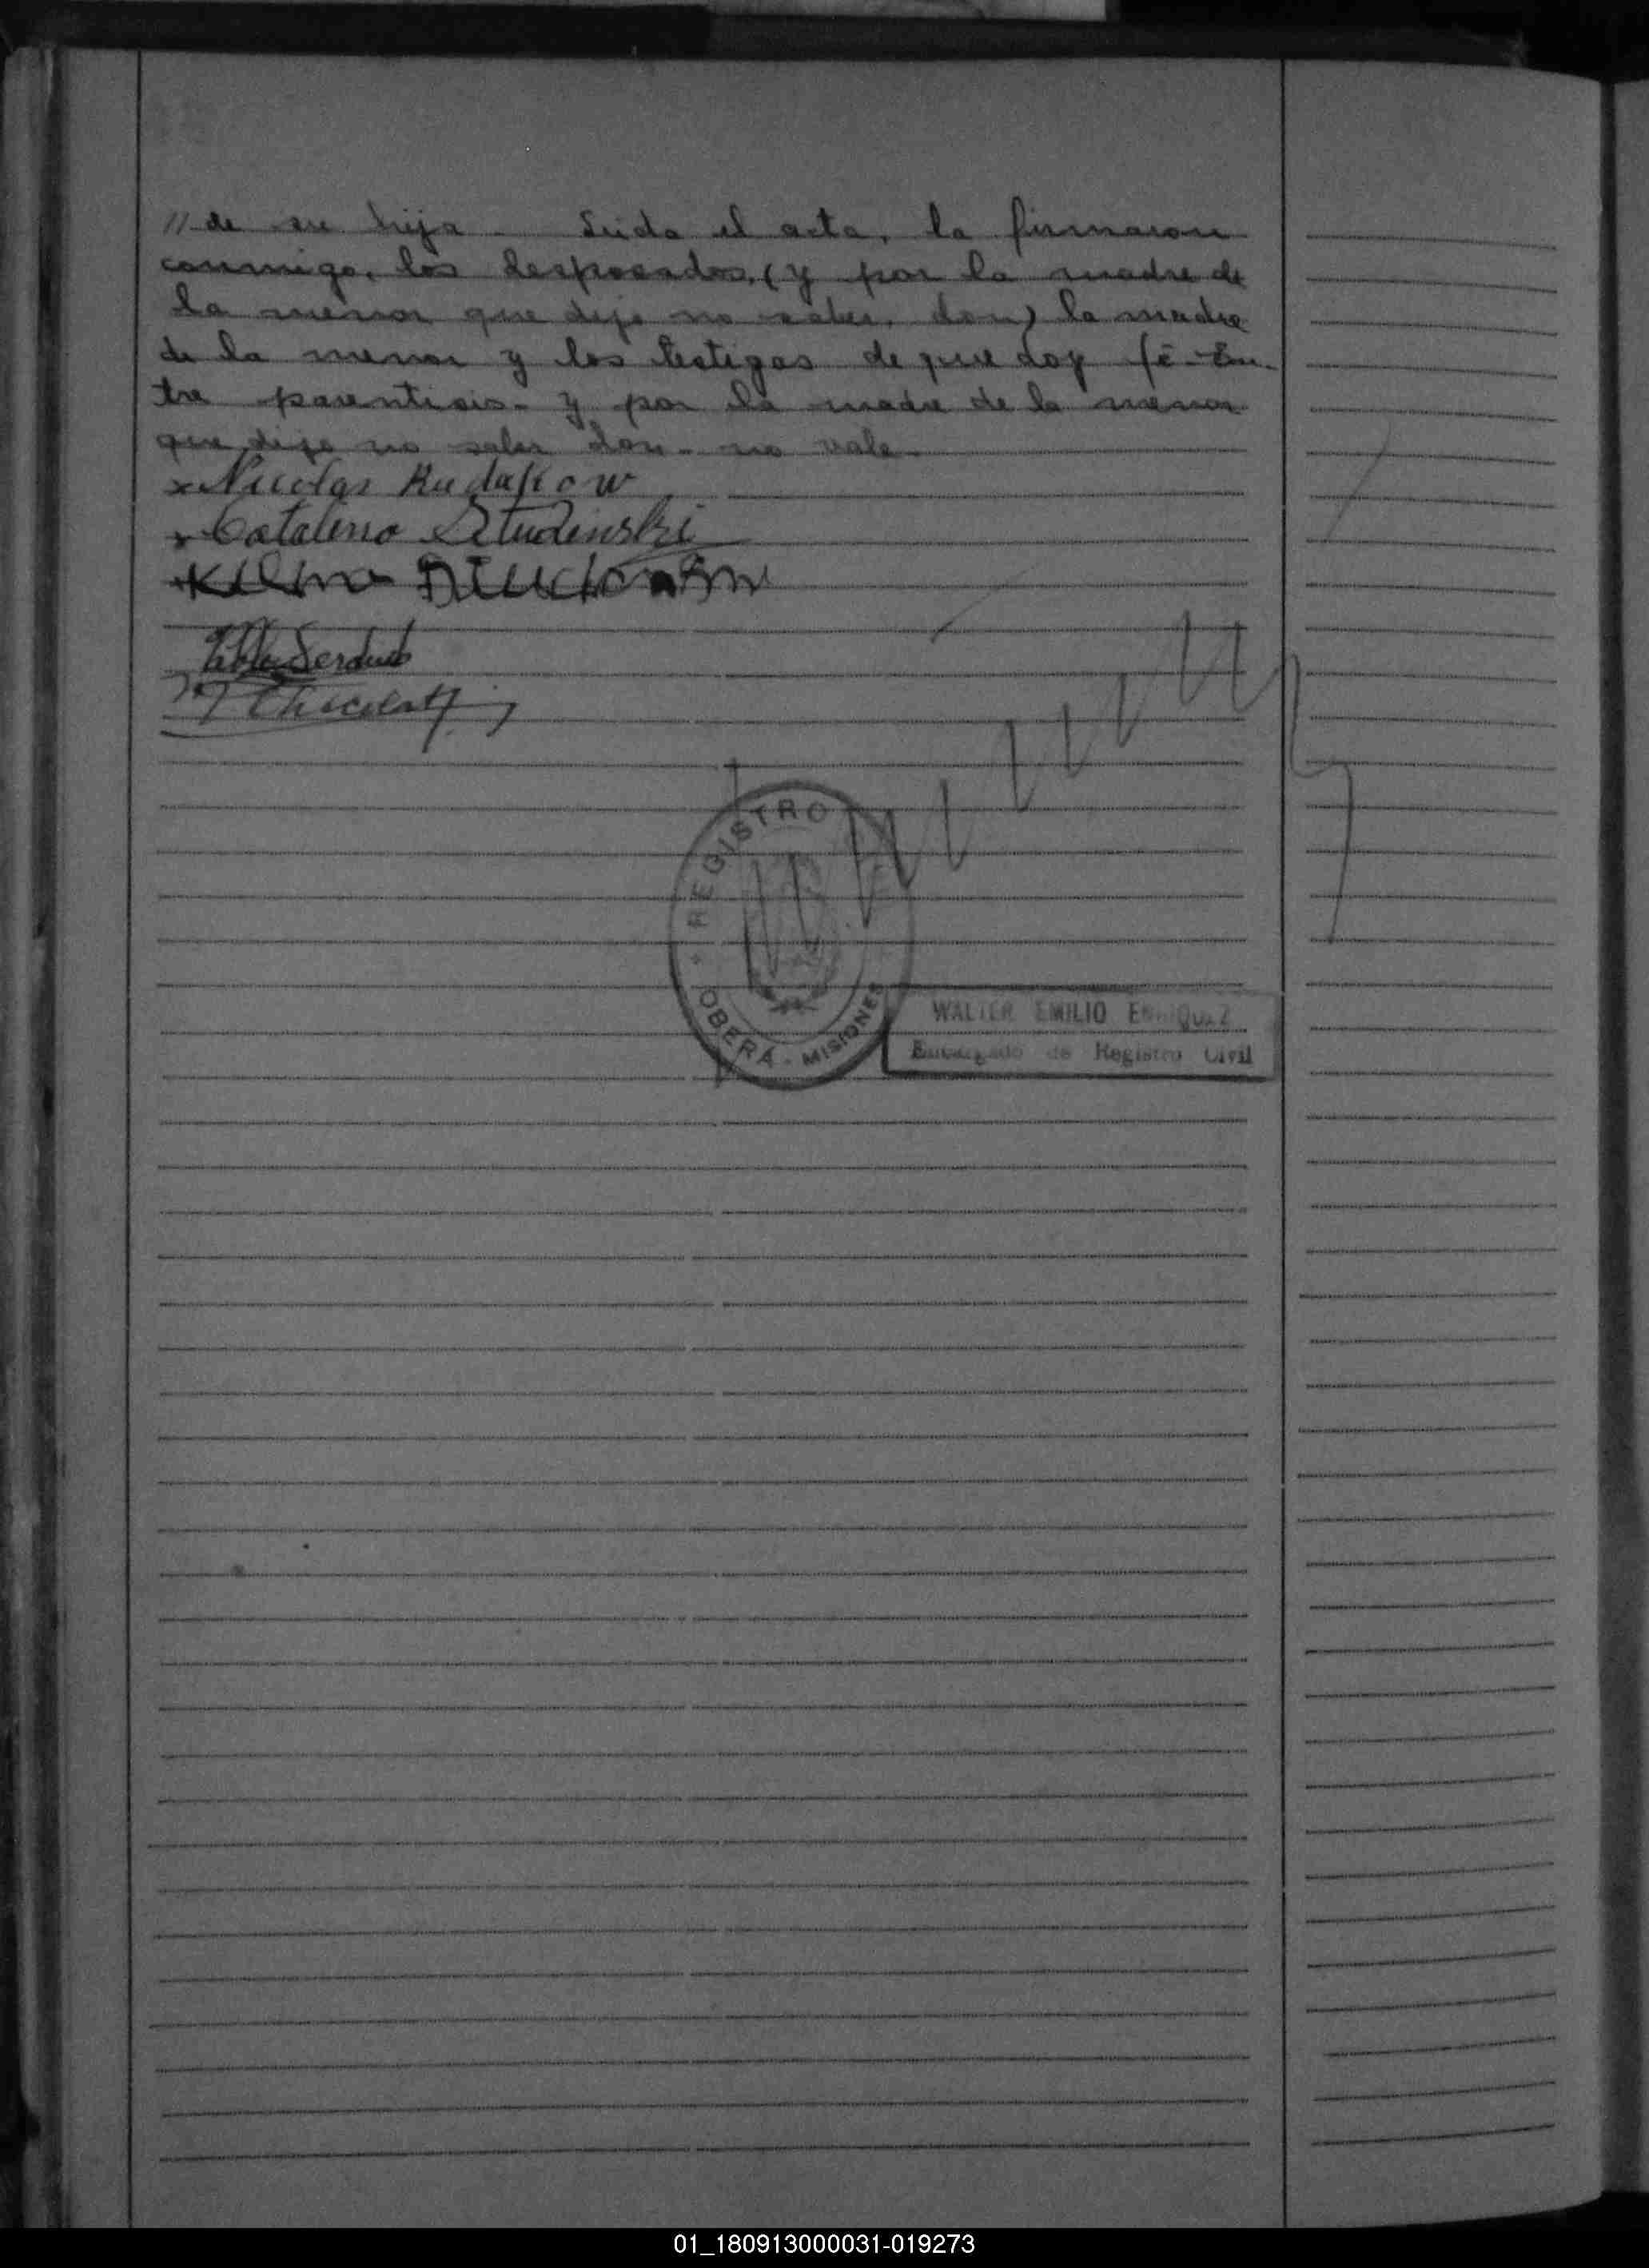 // de su hija - Leida el acta, la firmaron
conmigo, los desposados, (y por la madre de
la menor que dijo no saber, don) la madre
de la menor y los testigos de que doy fé - En-
tre parentisis - y por la madre de la menor
que dijo no saber don - no vale -
x Nicolas Rudakow
x Catalina Studinski
x
Pablo Serdiuk
REGISTRO
OBERÁ - MISIONES
WALTER EMILIO ENRIQUEZ
Encargado de Registro Civil
01_180913000031-019273